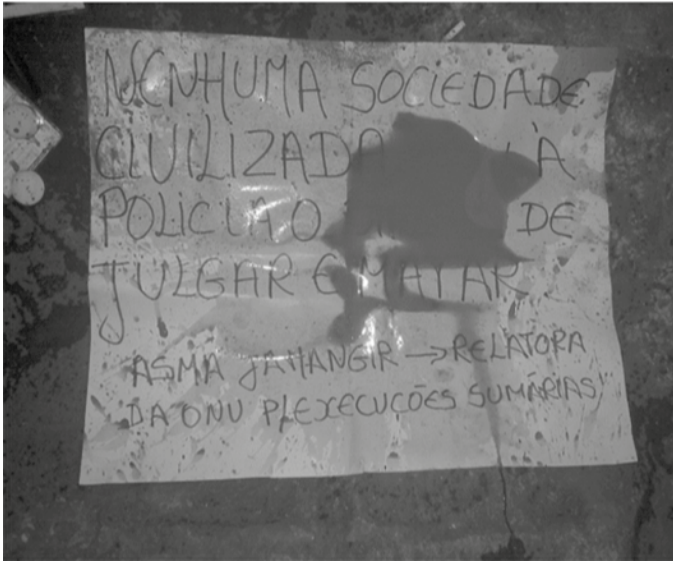 NENHUMA SOCIEDADE
CIVILIZADA À
POLICIA O DE
JULGAR E MATAR
ASMA JAHANGIR → RELATORA
DA ONU P/EXECUÇÕES SUMÁRIAS